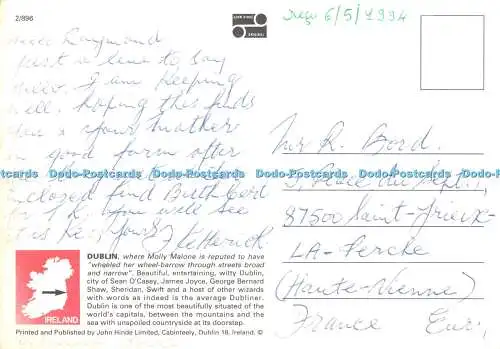 2/896
JOHN HINDE
ORIGINAL
Reçu 6/5/1994
Raymond
Just a line to say
Hello. I am keeping
well, hoping this finds
you & your mother
in good form after
enclosed find Birth Card
you will see
Mr R. Bord.
87500 Saint-Yrieix-
LA-Perche
(Haute-Vienne)
France Eur.
DUBLIN, where Molly Malone is reputed to have
"wheeled her wheel-barrow through streets broad
and narrow". Beautiful, entertaining, witty Dublin,
city of Sean O'Casey, James Joyce, George Bernard
Shaw, Sheridan, Swift and a host of other wizards
with words as indeed is the average Dubliner.
Dublin is one of the most beautifully situated of the
world's capitals, between the mountains and the
sea with unspoiled countryside at its doorstep.
IRELAND
Printed and Published by John Hinde Limited, Cabinteely, Dublin 18, Ireland. ©
Dodo-Postcards Dodo-Postcards Dodo-Postcards Dodo-Postcards Dodo-Postcards